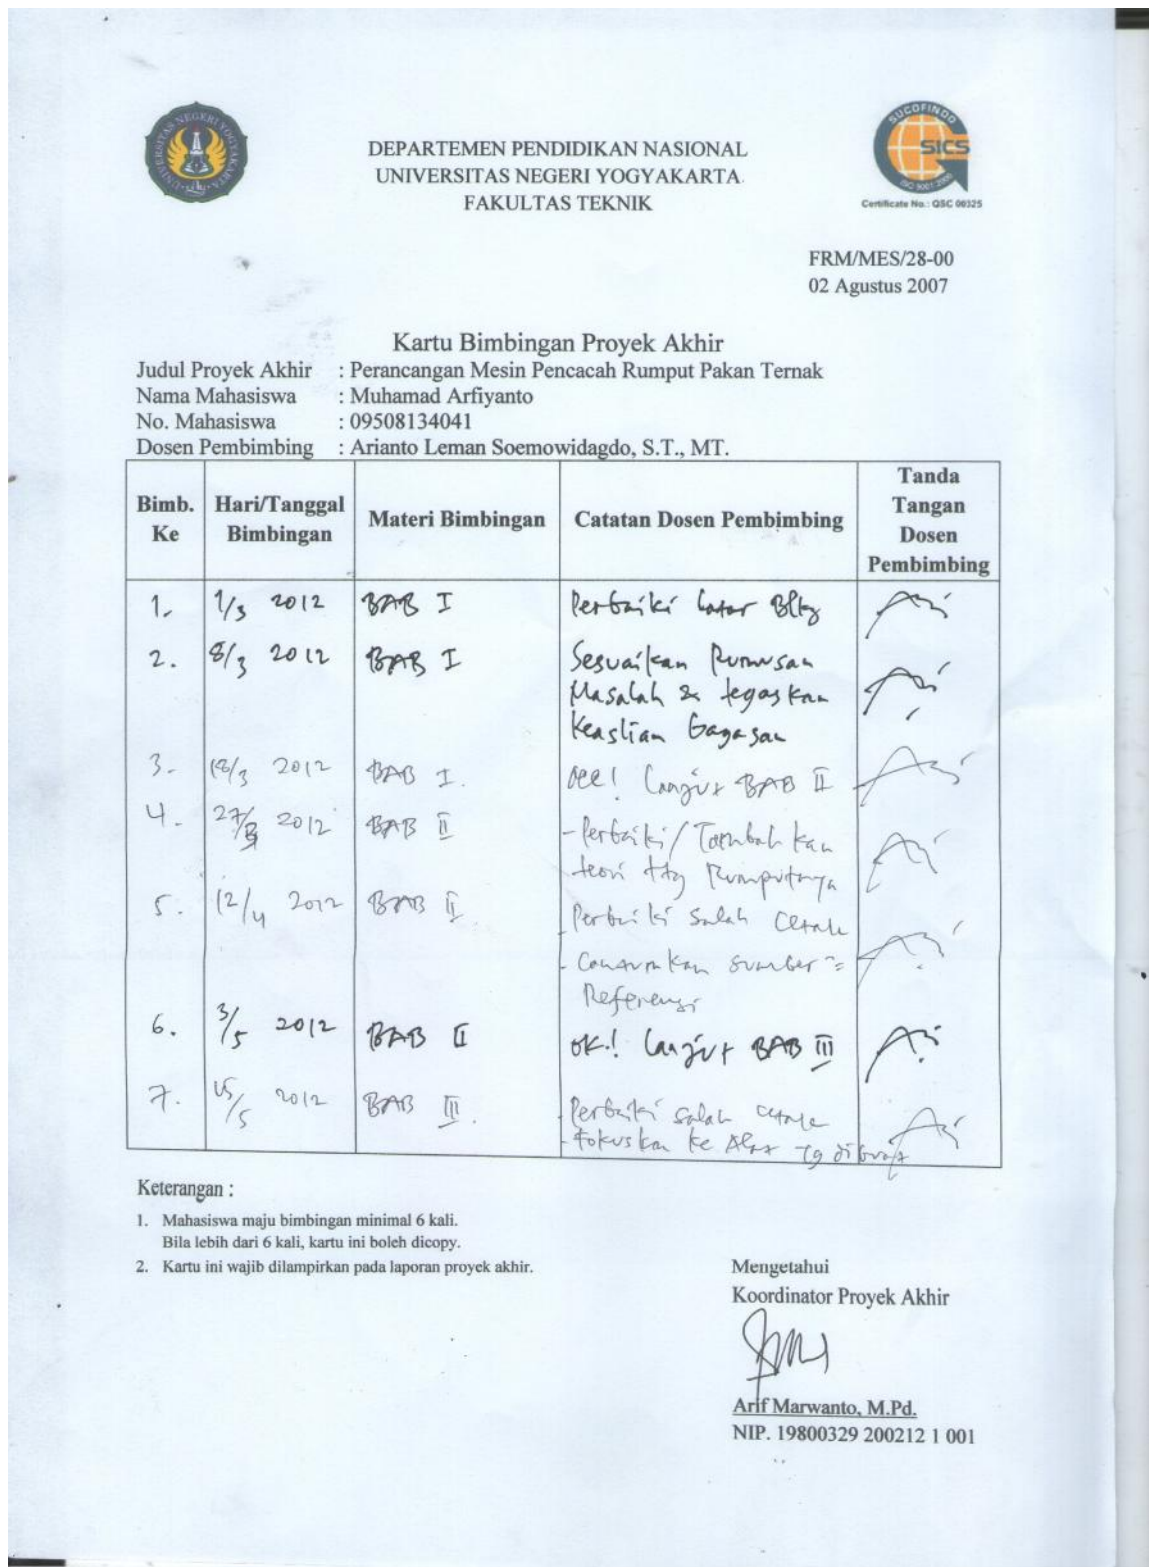 UNIVERSITAS NEGERI YOGYAKARTA
SUCOFINDO
SICS
ISO 9001:2000
Certificate No.: QSC 00325
DEPARTEMEN PENDIDIKAN NASIONAL
UNIVERSITAS NEGERI YOGYAKARTA
FAKULTAS TEKNIK
FRM/MES/28-00
02 Agustus 2007
Kartu Bimbingan Proyek Akhir
Judul Proyek Akhir : Perancangan Mesin Pencacah Rumput Pakan Ternak
Nama Mahasiswa : Muhamad Arfiyanto
No. Mahasiswa : 09508134041
Dosen Pembimbing : Arianto Leman Soemowidagdo, S.T., MT.
Bimb. Ke Hari/Tanggal Bimbingan Materi Bimbingan Catatan Dosen Pembimbing Tanda Tangan Dosen Pembimbing
1. 1/3 2012 BAB I Perbaiki Latar Blkg
2. 8/3 2012 BAB I Sesuaikan Rumusan
Masalah & tegaskan
Keaslian Gagasan
3. 2012 BAB I. Lanjut BAB II
4. 27/3 2012 BAB II - Perbaiki/Tambahkan
teori ttg Rumputnya
5. 12/4 2012 BAB II - Perbaiki salah cetak
- Cantumkan sumber
Referensi
6. 3/5 2012 BAB II OK! Lanjut BAB III
7. 15/5 2012 BAB III. - Perbaiki salah cetak
- fokuskan ke Alat yg dibuat
Keterangan :
1. Mahasiswa maju bimbingan minimal 6 kali.
Bila lebih dari 6 kali, kartu ini boleh dicopy.
2. Kartu ini wajib dilampirkan pada laporan proyek akhir.
Mengetahui
Koordinator Proyek Akhir
Arif Marwanto, M.Pd.
NIP. 19800329 200212 1 001